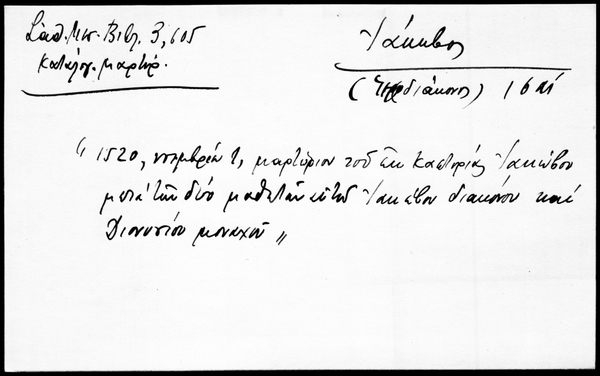 Σάθ. Μεσ. Βιβλ. 3, 605
Καταλογ. μαρτύρ.
Ἰάκωβος
(Ἱεροδιάκονος) 16 αἰ
"1520, νοεμβρίου 1, μαρτύριον τοῦ ἐκ Καστορίας Ἰακώβου
μετὰ τῶν δύο μαθητῶν αὐτοῦ Ἰακώβου διακόνου καὶ
Διονυσίου μοναχοῦ"